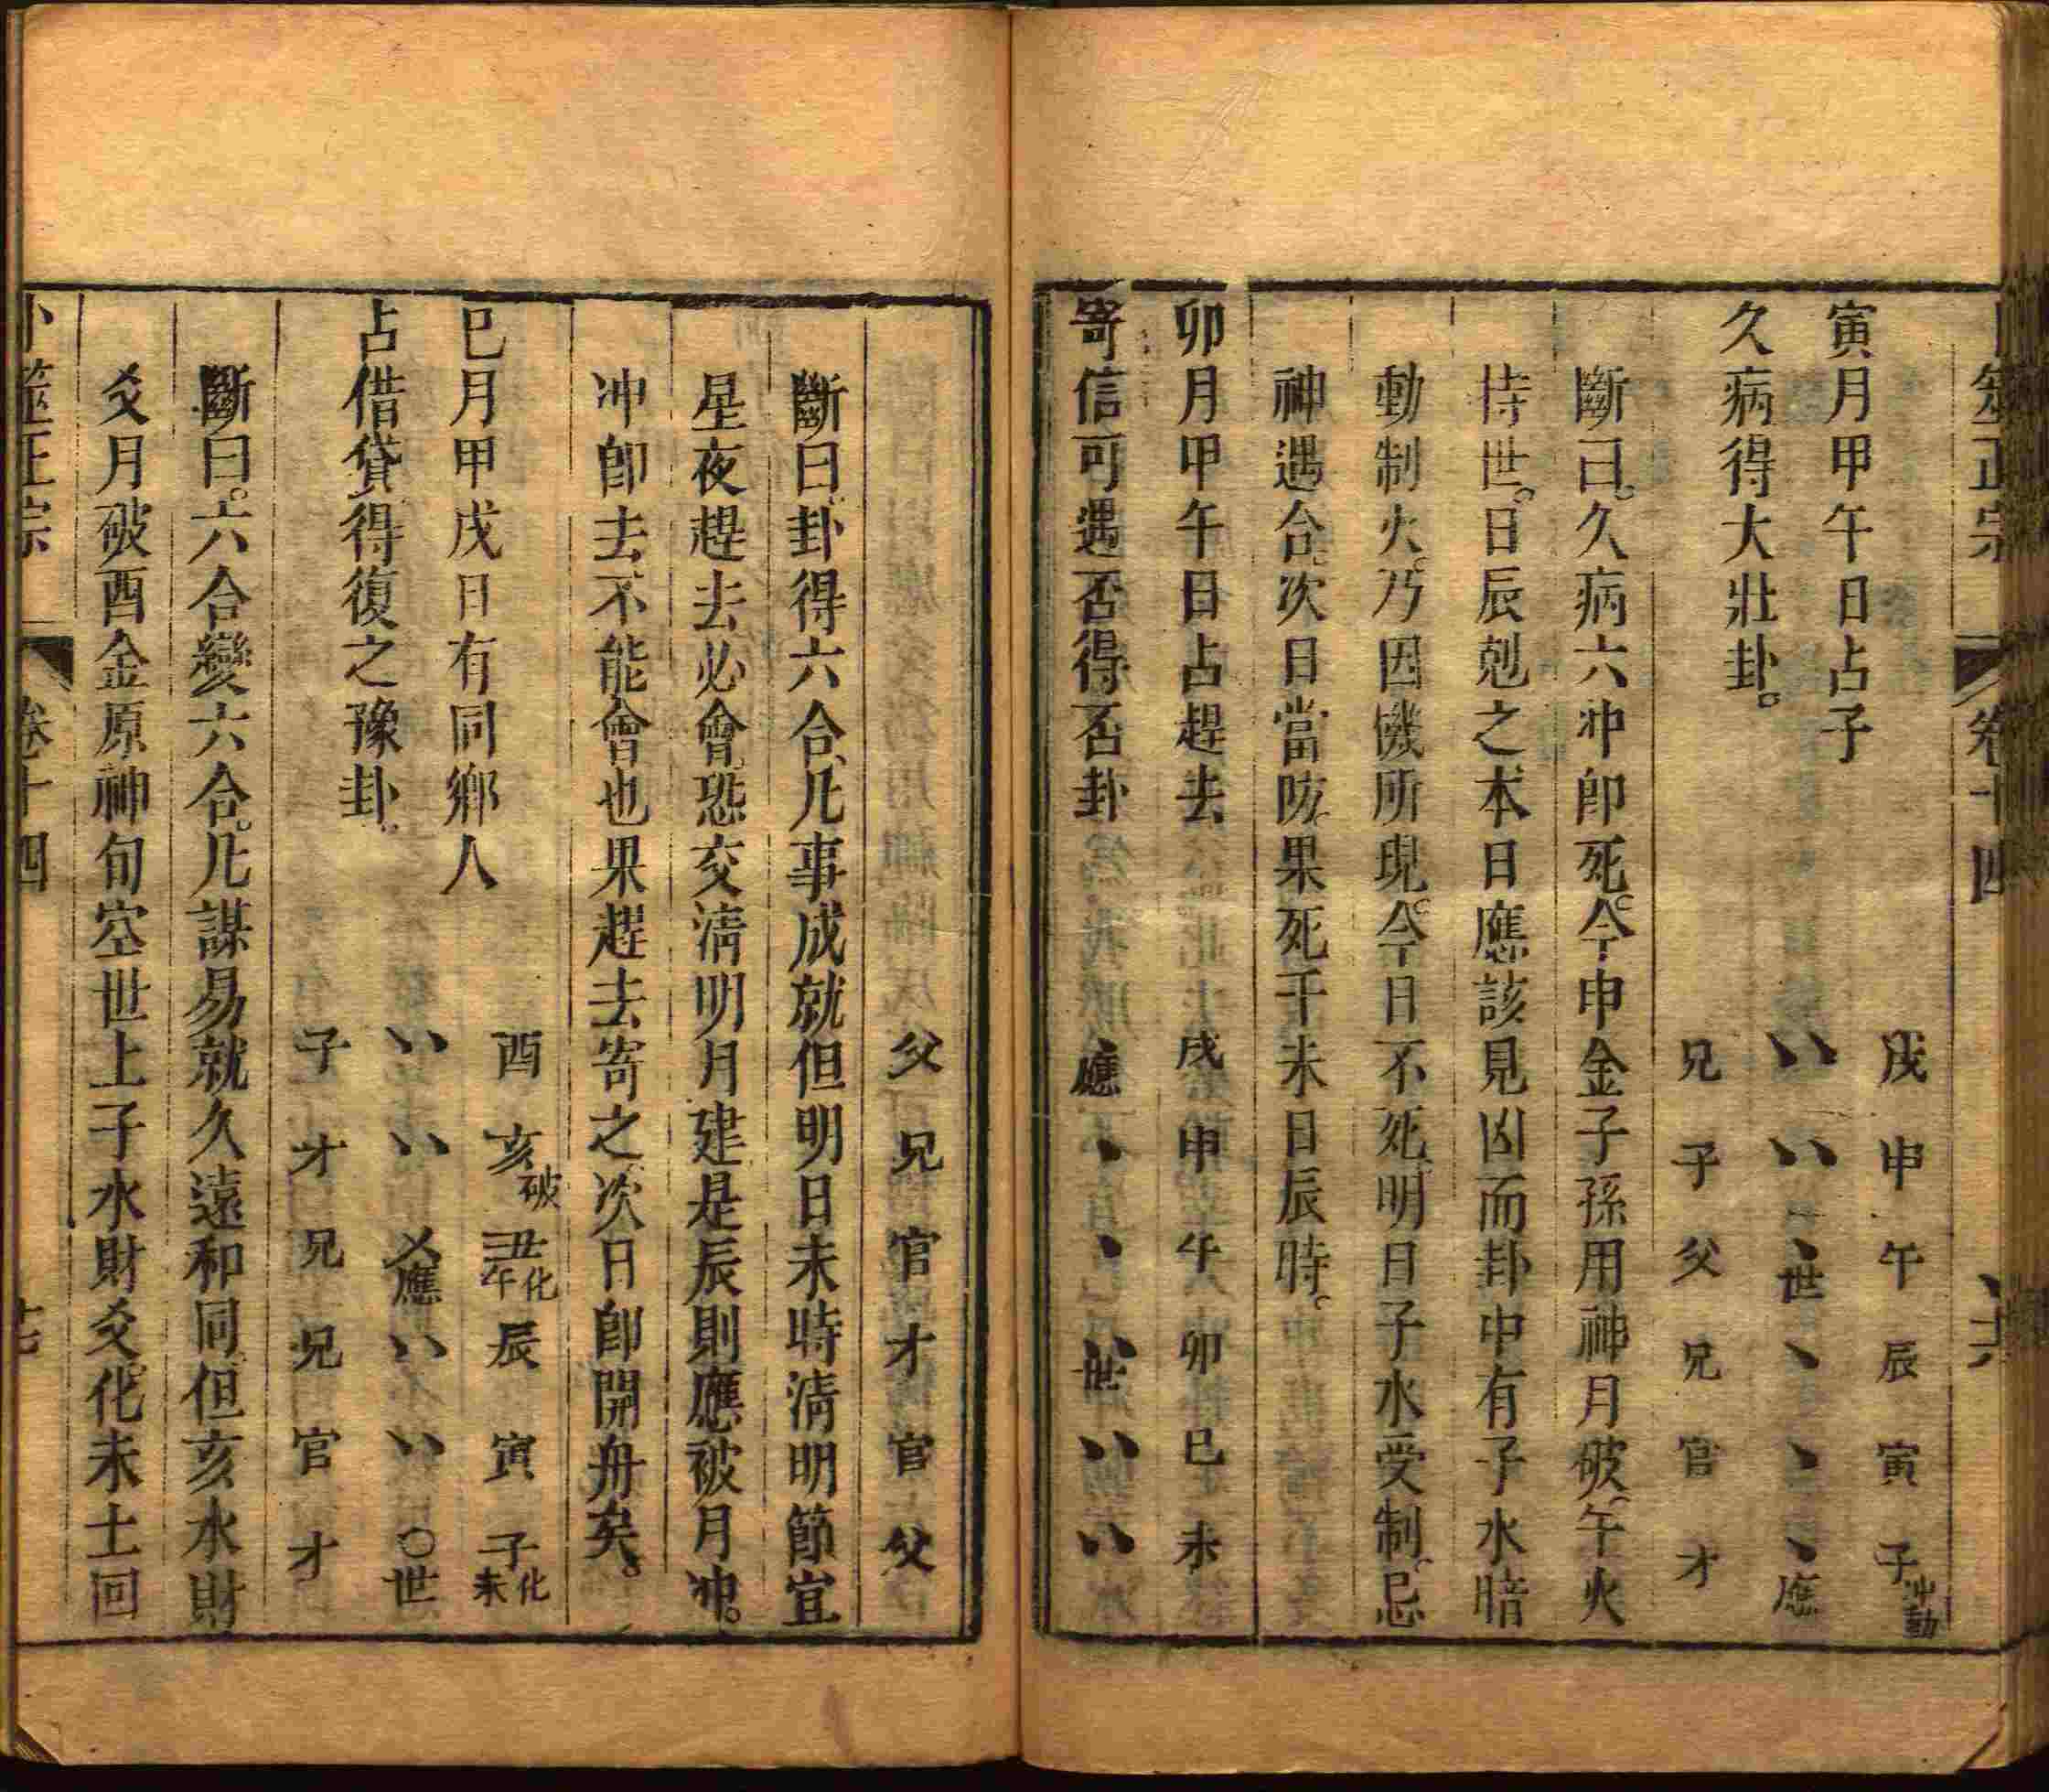 卜筮正宗　卷十四　十六
戌　申　午　辰　寅　子冲動
寅月甲午日占子
、、　、、　、世　、　、　、應
久病得大壯卦。
兄　子　父　兄　官　才
斷曰。久病六冲卽死。今申金子孫用神月破。午火
持世。日辰剋之本日應該見凶而卦中有子水暗
動制火。乃因機所現。今日不死。明日子水受制。忌
神遇合。次日當防。果死于未日辰時。
卯月甲午日占趕去　戌　申　午　卯　巳　未
寄信可遇否得否卦　應　、　、　、、世　、、　、、
父　兄　官　才　官　父
斷曰。卦得六合。凡事成就但明日未時淸明節宜
星夜趕去必會。恐交淸明月建是辰則應被月冲。
冲卽去不能會也果趕去寄之次日卽開舟矣。
酉　亥破　丑化午　辰　寅　子化未
巳月甲戌日有同鄉人
、、　、、　乂應　、、　、、　〇世
占借貸得復之豫卦。
子　才　兄　兄　官　才
斷曰。六合變六合。凡謀易就久遠和同。但亥水財
爻月破酉金原神旬空世上子水財爻。化未土回
卜筮正宗　卷十四　十七